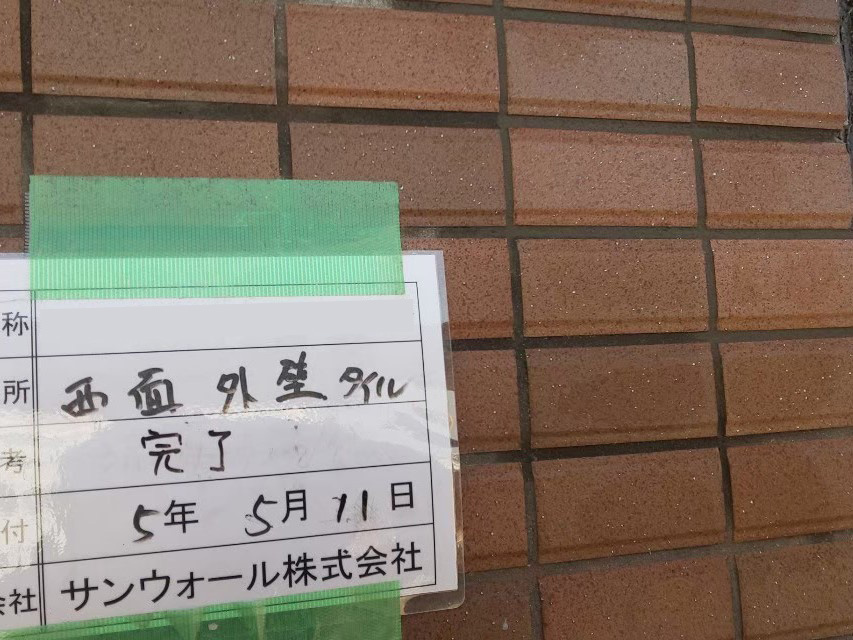 称
所 西面 外壁タイル
考 完了
付 5年 5月 11日
会社 サンウォール株式会社